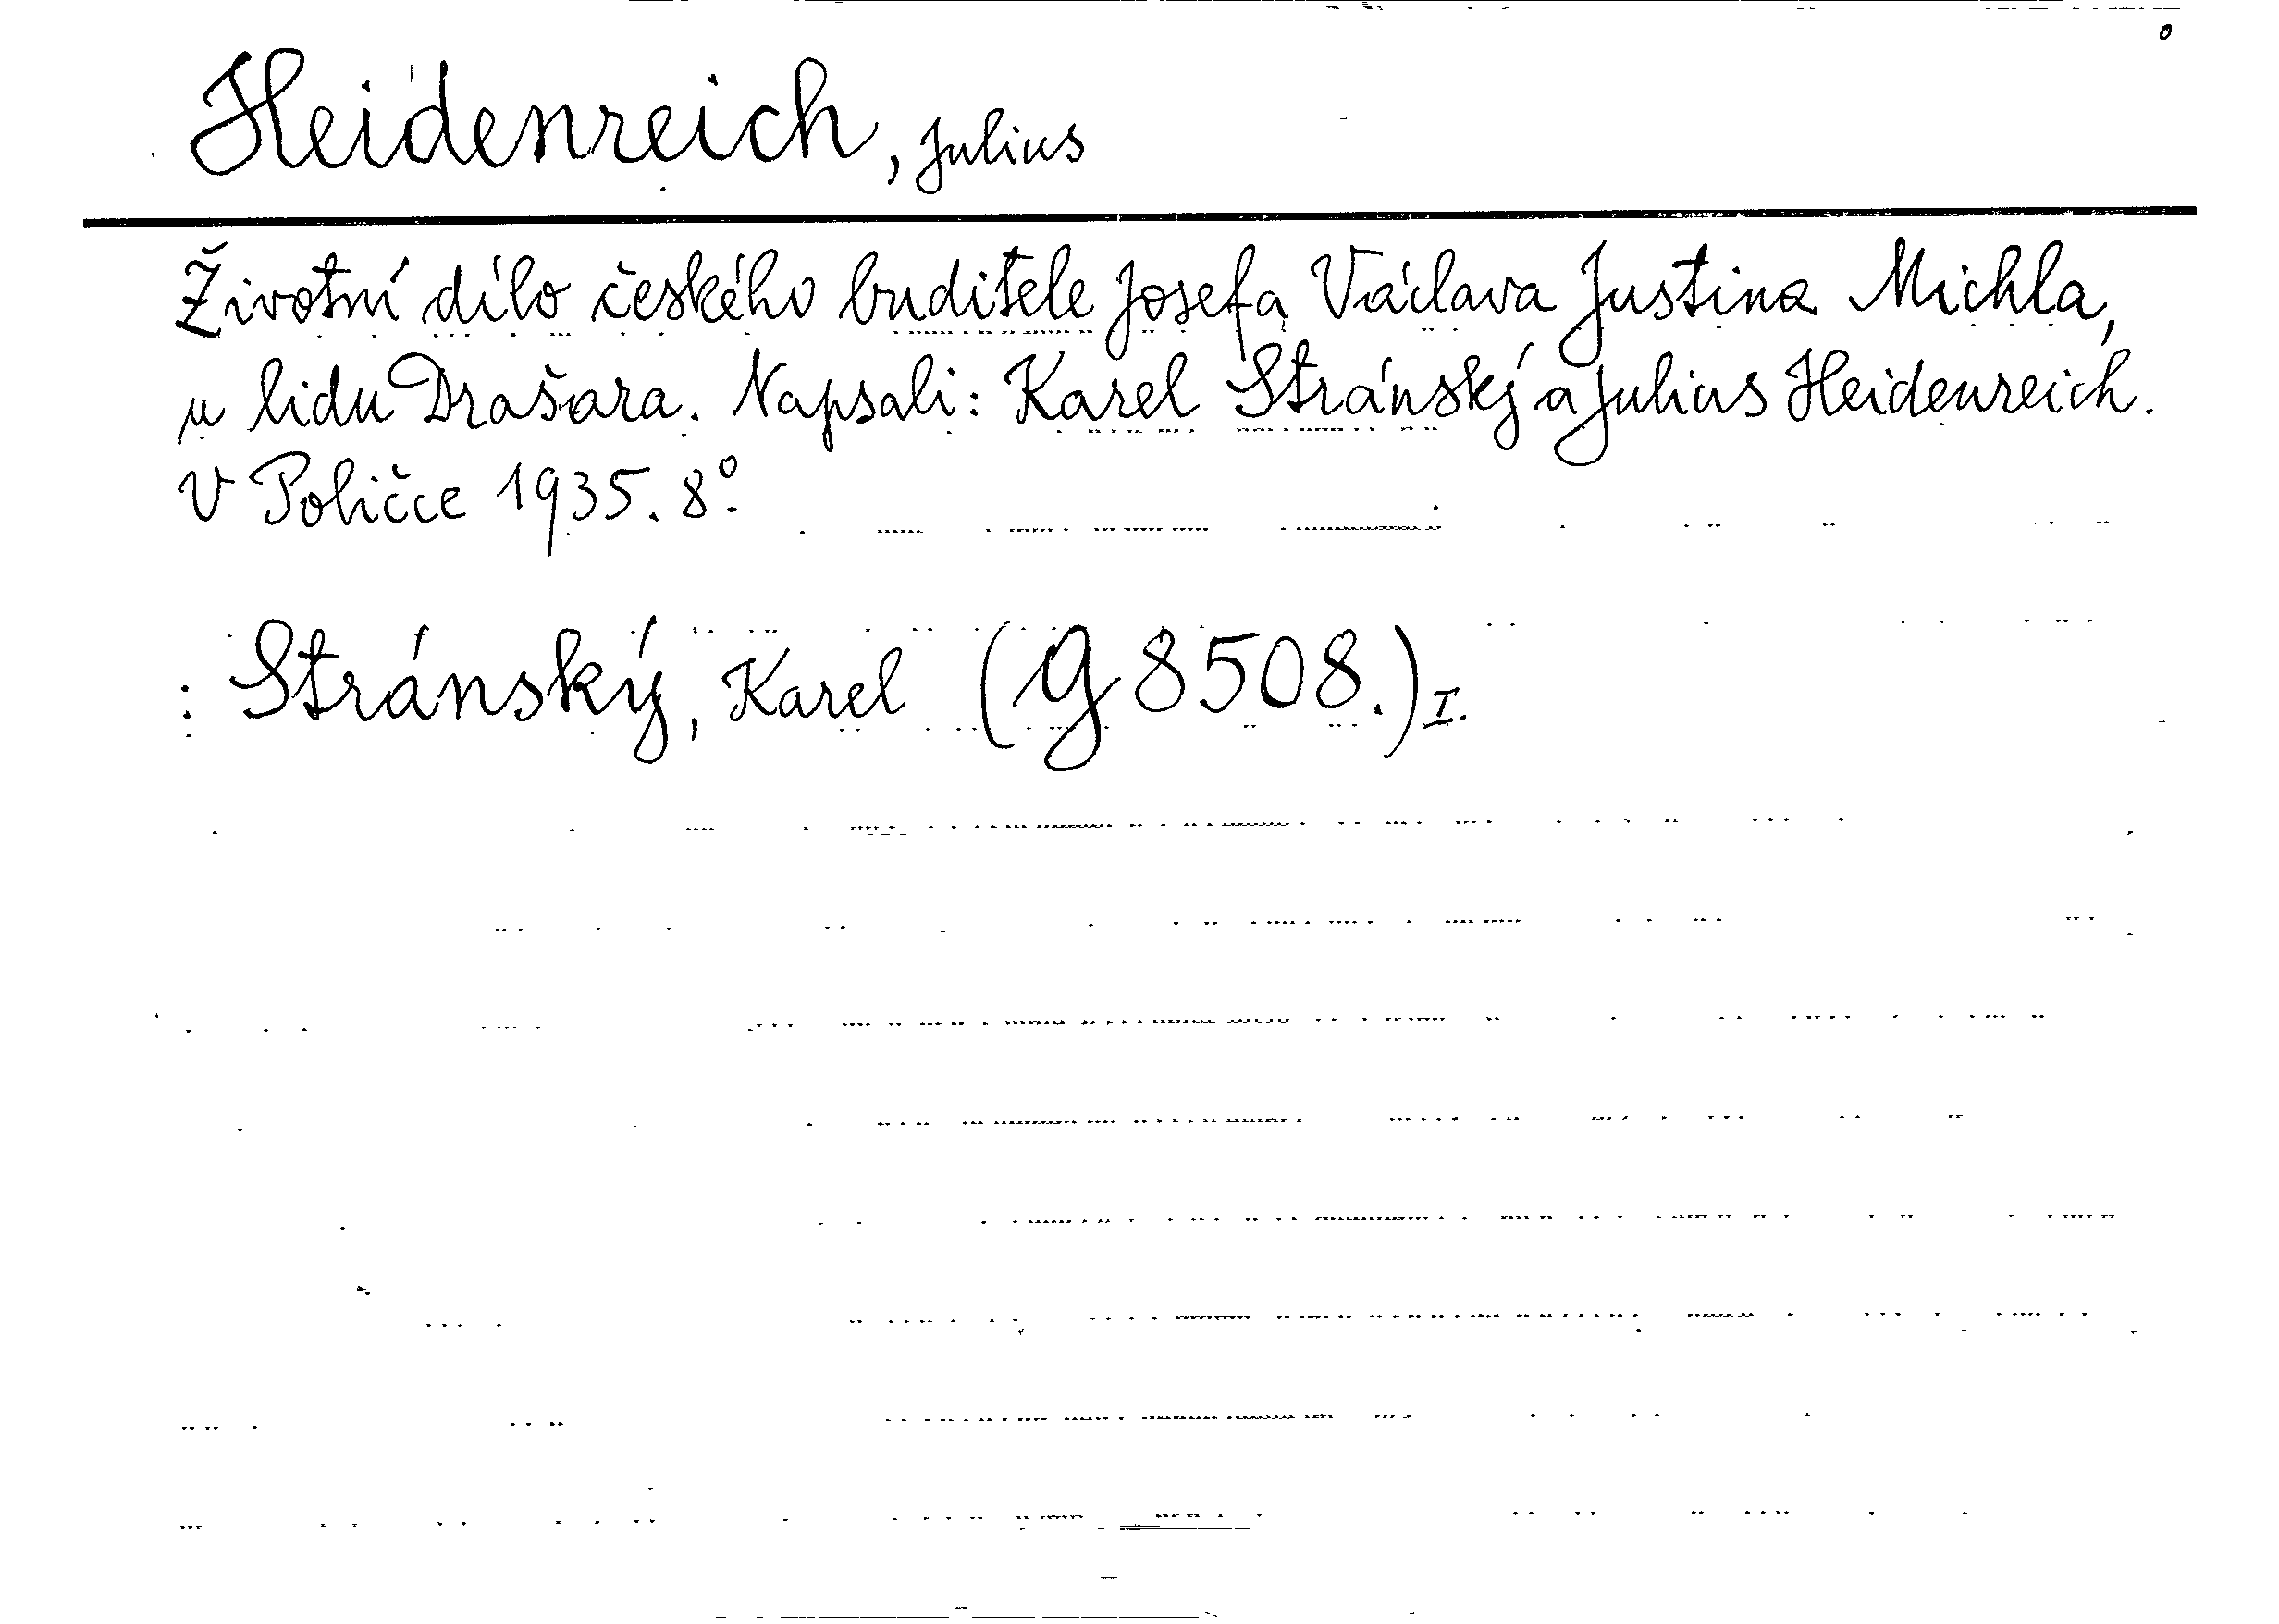 Heidenreich, Julius
Životní dílo českého buditele Josefa Václava Justina Michla,
u lidu Drašara. Napsali: Karel Stránský a Julius Heidenreich.
V Poličce 1935. 8°.
: Stránský, Karel (g 8508.) I.